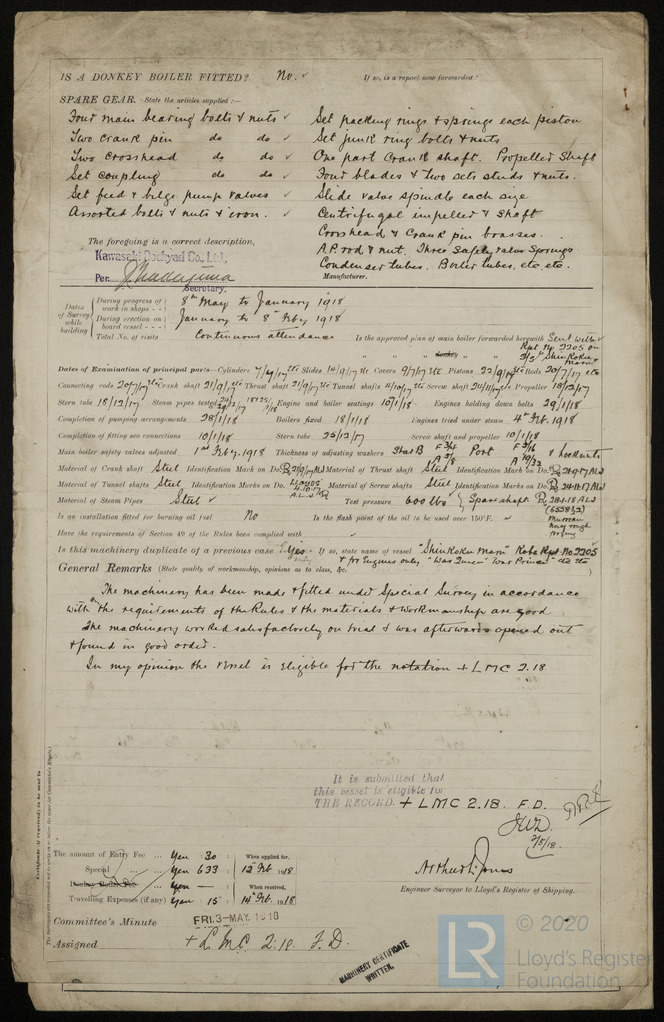 IS A DONKEY BOILER FITTED? No. If so, is a report now forwarded?
SPARE GEAR. State the articles supplied:—
Four main bearing bolts & nuts Set packing rings & springs each piston
Two crank pin do do Set junk ring bolts & nuts
Two crosshead do do One part Crank shaft. Propeller Shaft
Set coupling do do Four blades & two sets studs & nuts.
Set feed & bilge pump valves Slide valve spindle each size
Assorted bolts & nuts & iron. Centrifugal impeller & shaft
Crosshead & Crank pin brasses.
The foregoing is a correct description, A.P. rod & nut. Three Safety valve Springs
Kawasaki Dockyard Co., Ltd., Condenser tubes. Boiler tubes, etc etc.
Per. Manufacturer.
Secretary.
Dates of Survey while building
During progress of work in shops - - 8th May to January 1918
During erection on board vessel - - - January to 8th Feby 1918
Total No. of visits Continuous attendance Is the approved plan of main boiler forwarded herewith Sent with Rept No 2205 on
" " " donkey " " " Shinkoku Maru
Dates of Examination of principal parts—Cylinders Slides Covers Pistons Rods 20/7/17 etc
Connecting rods 20/7/17 etc Crank shaft 21/9/17 etc Thrust shaft 21/9/17 etc Tunnel shafts Screw shaft Propeller 18/12/17
Stern tube 18/12/17 Steam pipes tested Engine and boiler seatings 10/1/18 Engines holding down bolts 29/1/18
Completion of pumping arrangements 28/1/18 Boilers fixed 18/1/18 Engines tried under steam 4th Feb. 1918
Completion of fitting sea connections 10/1/18 Stern tube 25/12/17 Screw shaft and propeller 10/1/18
Main boiler safety valves adjusted 1st Feby. 1918 Thickness of adjusting washers Star B F 3/4 A 3/8 Port F 5/16 A 9/32 & locknuts
Material of Crank shaft Steel Identification Mark on Do. Material of Thrust shaft Steel Identification Mark on Do.
Material of Tunnel shafts Steel Identification Marks on Do. Material of Screw shafts Steel Identification Marks on Do.
Material of Steam Pipes Steel Test pressure 600 lbs Spare shaft
Is an installation fitted for burning oil fuel No Is the flash point of the oil to be used over 150°F.
Have the requirements of Section 49 of the Rules been complied with
Is this machinery duplicate of a previous case Yes If so, state name of vessel "Shinkoku Maru" Kobe Rept. No 2205
& for Engines only "War Queen" "War Prince" etc etc
General Remarks (State quality of workmanship, opinions as to class, &c.
The machinery has been made & fitted under Special Survey in accordance
with the requirements of the Rules & the materials & workmanship are good
The machinery worked satisfactorily on trial & was afterwards opened out
& found in good order.
In my opinion the vessel is eligible for the notation + LMC 2.18
It is submitted that
this vessel is eligible for
THE RECORD. + LMC 2.18. F.D.
JWD
2/5/18.
Certificate (if required) to be sent to
The amount of Entry Fee ... Yen 30 : When applied for,
Special ... Yen 633 : 12 Feb 1918
Donkey Boiler Fee ... Yen — : When received,
Travelling Expenses (if any) Yen 15 : 14 Feb. 1918
Arthur L. Jones
Engineer Surveyor to Lloyd's Register of Shipping.
Committee's Minute FRI. 3-MAY. 1918
Assigned + L.M.C 2.18 F.D.
MACHINERY CERTIFICATE
WRITTEN.
© 2020
LR Lloyd's Register
Foundation